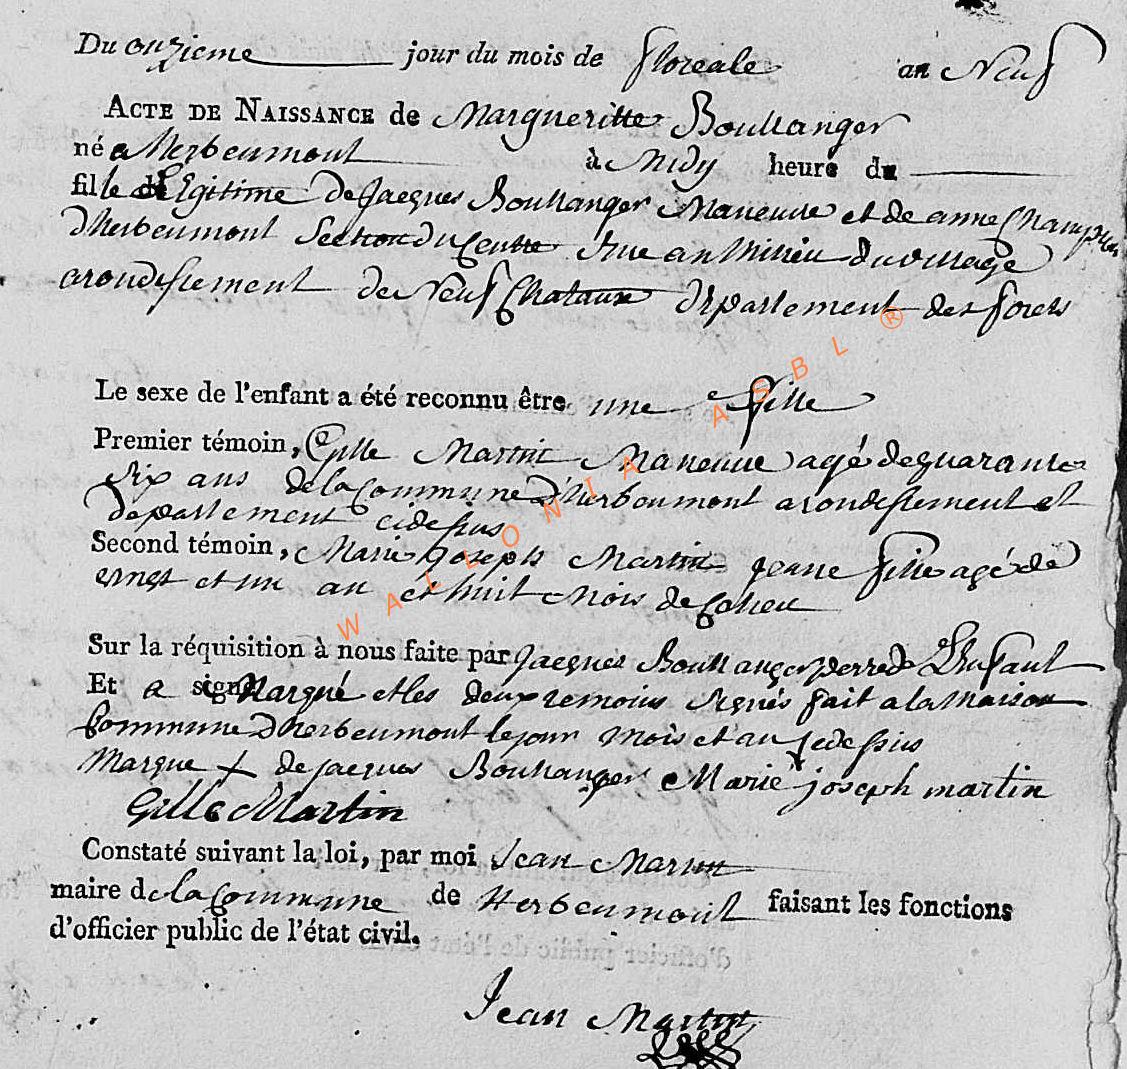 Du onzieme jour du mois de floreale an Neuf
ACTE DE NAISSANCE de Margueritte Boullanger
né a Herbeumont à Midy heure du
fille Legitime de Jacques Boullanger Maneuvre et de anne Champion
dherbeumont Section du Centre Rue au Milieu du village
arondissement de Neuf Chataux département des forets
Le sexe de l'enfant a été reconnu être une fille
Premier témoin, Gille Martin Maneuvre agé de quarante
Six ans de la Commune d'herbeumont arondissement et
departement cidessus
Second témoin, Marie Joseph Martin jeune fille agé de
et un an et huit Mois
Sur la réquisition à nous faite par Jacques Boullanger perre de L'Enfant
Et a signé Marqué et les deux temoins Signés fait a la Maison
Commune dherbeumont le jour Mois et an cidessus
Marque + de jacques Boullanger Marie joseph martin
Gille Martin
Constaté suivant la loi, par moi Jean Martin
maire de la Commune de Herbeumont faisant les fonctions
d'officier public de l'état civil.
Jean Martin
WALLONIA ASBL ®